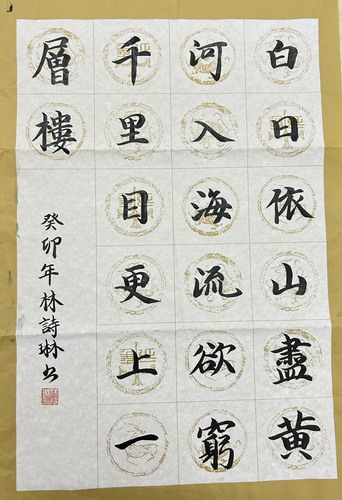 白日依山盡黃
河入海流欲窮
千里目更上一
層樓
癸卯年林詩琳書